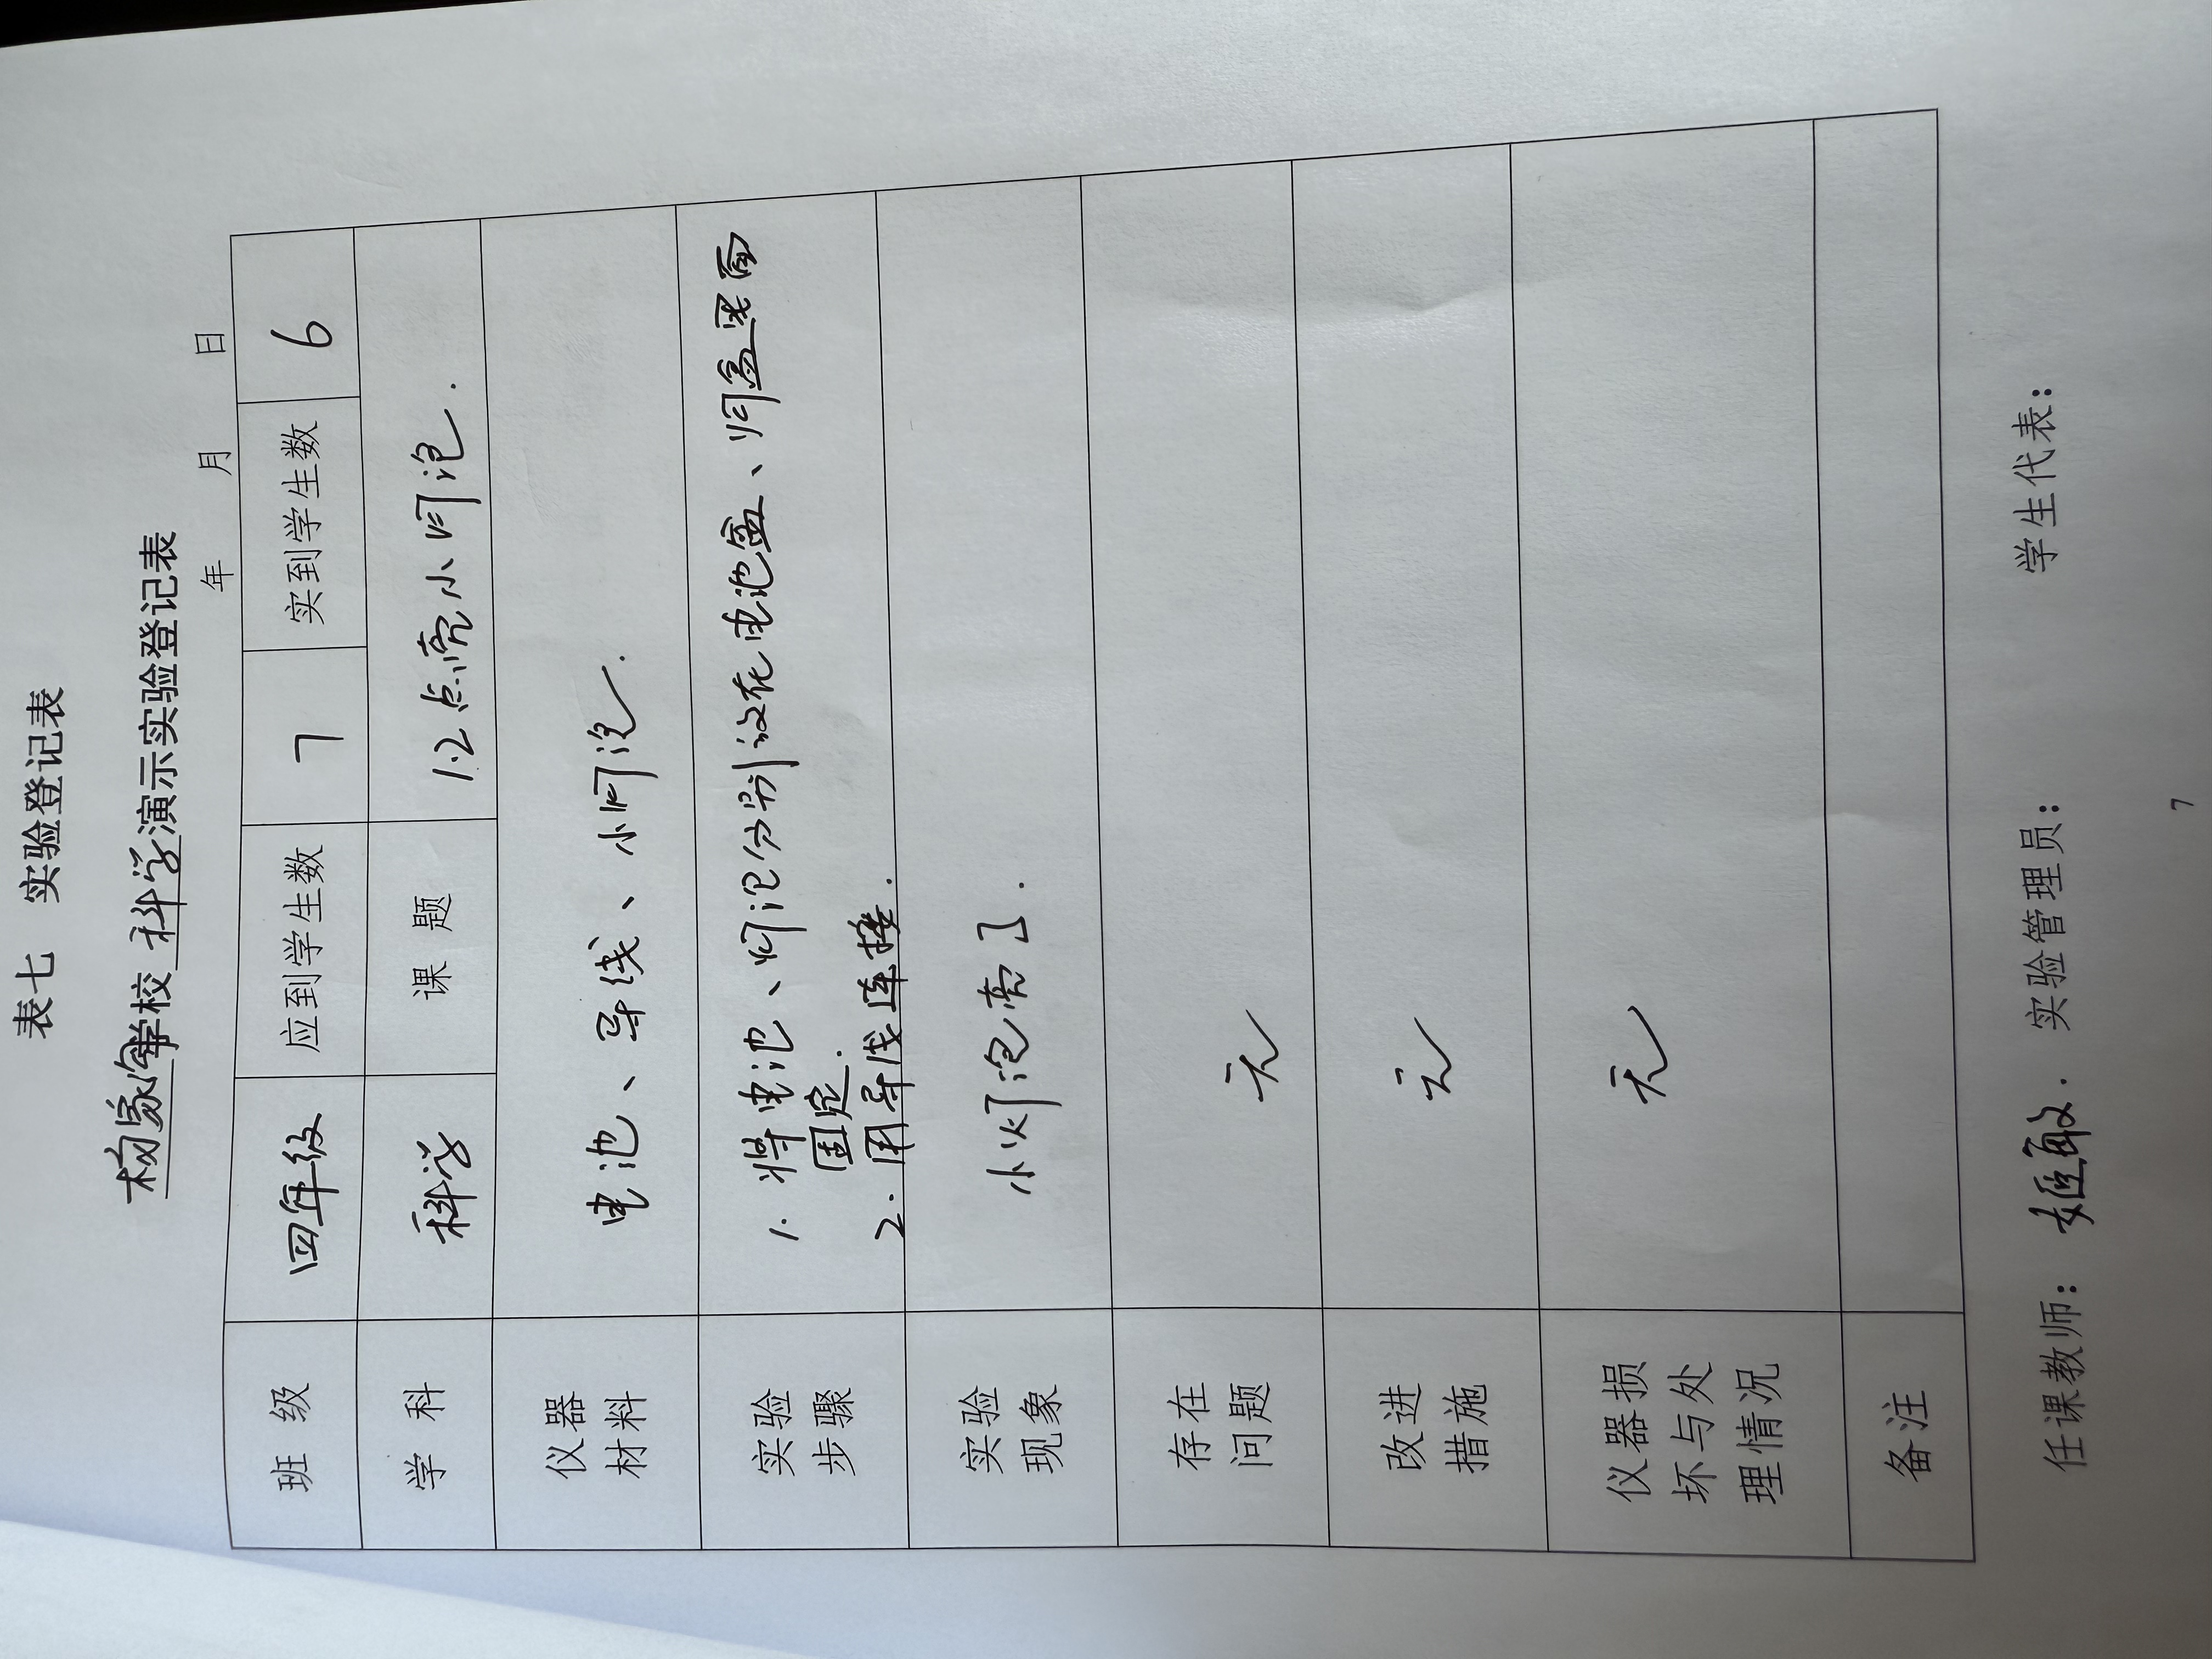 表七 实验登记表
杨家沟学校 科学演示实验登记表
年 月 日
班 级 四年级 应到学生数 7 实到学生数 6
学 科 科学 课 题 1.2点亮小灯泡.
仪器材料 电池、导线、小灯泡.
实验步骤 1. 将电池、灯泡分别放在电池盒、灯盒里面
固定.
2. 用导线连接.
实验现象 小灯泡亮了.
存在问题 无
改进措施 无
仪器损坏与处理情况 无
备注
任课教师： 姬敏. 实验管理员： 学生代表：
7